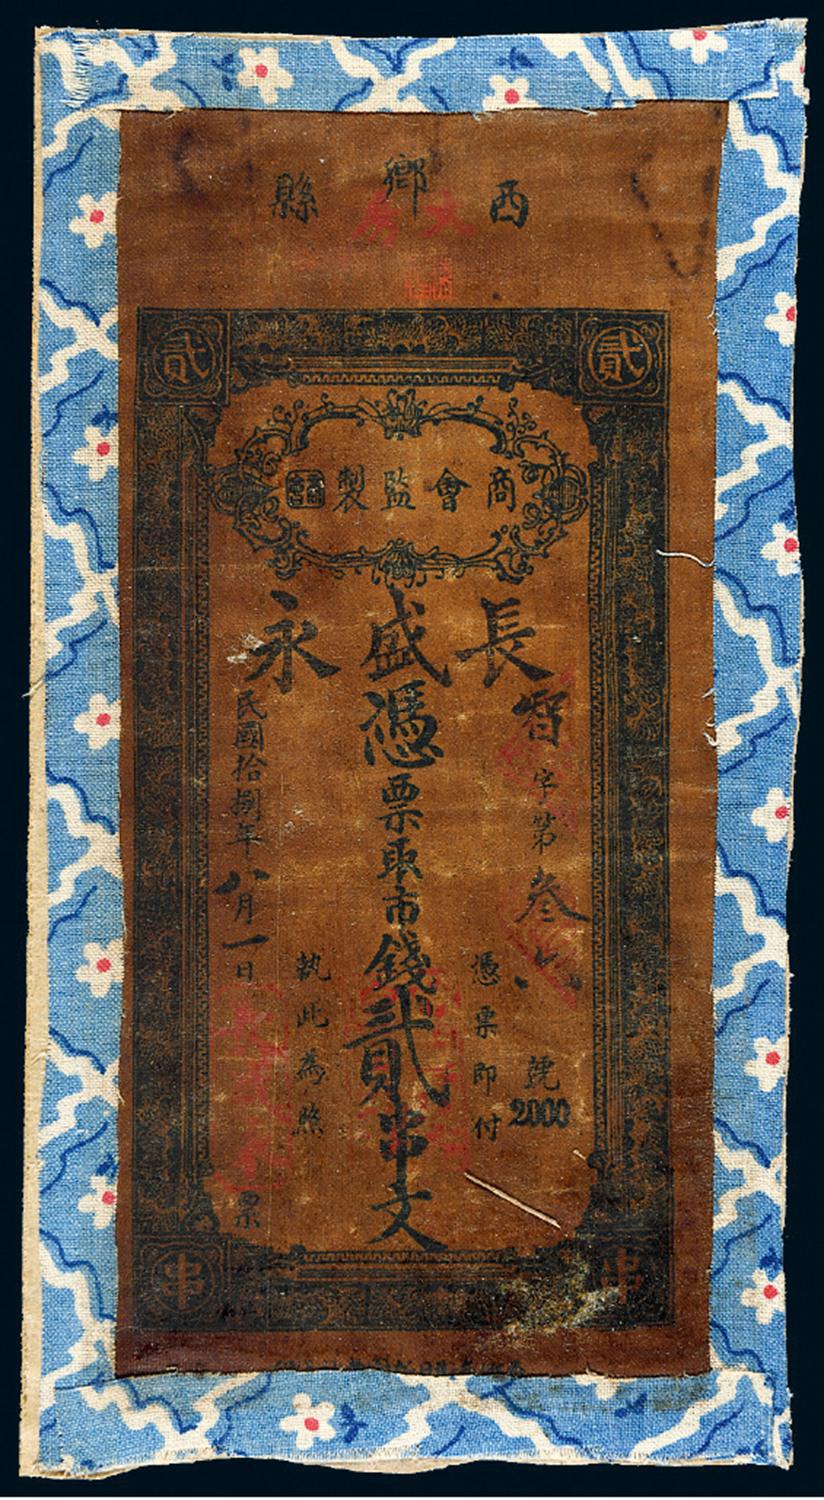 西鄉縣
貳 貳
商會監製
長盛永
智字第叁六號
2000
憑票即付
憑票取市錢貳串文
執此為照
民國拾捌年八月一日
票
串 串